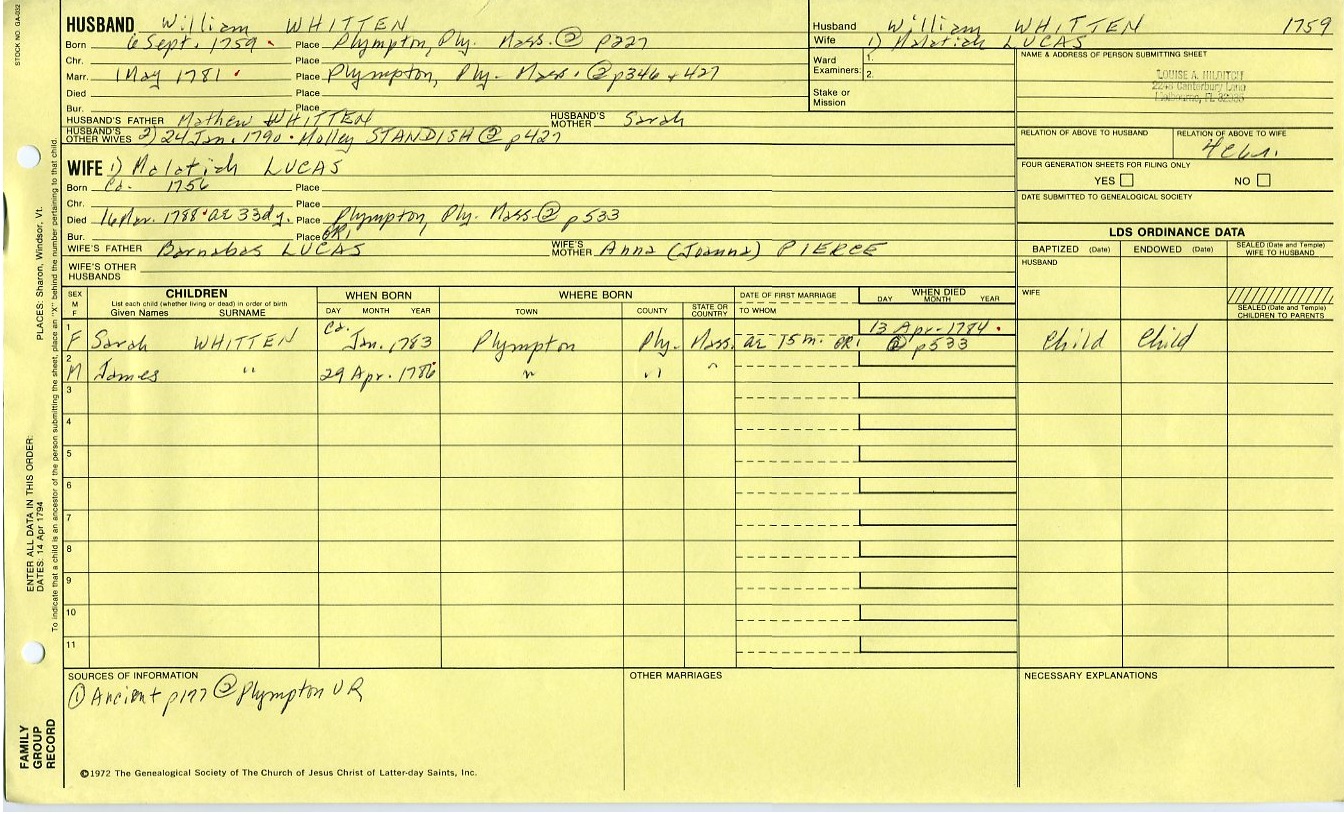 STOCK NO. GA-032
HUSBAND William WHITTEN
Born 6 Sept. 1759 Place Plympton, Ply. Mass. ② p227
Chr. Place
Marr. 1 May 1781 Place Plympton, Ply. Mass. ② p346 + 427
Died Place
Bur. Place
HUSBAND'S FATHER Mathew WHITTEN HUSBAND'S MOTHER Sarah
HUSBAND'S OTHER WIVES 2) 24 Jan. 1790 Molley STANDISH ② p427
Husband William WHITTEN 1759
Wife 1) Malatiah LUCAS
Ward Examiners: 1.
2.
Stake or Mission
NAME & ADDRESS OF PERSON SUBMITTING SHEET
LOUISE A. HILDITCH
2243 Canterbury Lane
Melbourne, FL 32935
RELATION OF ABOVE TO HUSBAND RELATION OF ABOVE TO WIFE
FOUR GENERATION SHEETS FOR FILING ONLY
YES NO
DATE SUBMITTED TO GENEALOGICAL SOCIETY
WIFE 1) Malatiah LUCAS
Born Ca. 1756 Place
Chr. Place
Died 16 Mar. 1788 ae 33dy. Place Plympton, Ply. Mass. ② p533
Bur. Place GR1
WIFE'S FATHER Barnabas LUCAS WIFE'S MOTHER Anna (Joanna) PIERCE
WIFE'S OTHER HUSBANDS
LDS ORDINANCE DATA
BAPTIZED (Date) ENDOWED (Date) SEALED (Date and Temple) WIFE TO HUSBAND
HUSBAND
WIFE
SEALED (Date and Temple) CHILDREN TO PARENTS
SEX M F
CHILDREN
List each child (whether living or dead) in order of birth
Given Names SURNAME
WHEN BORN
DAY MONTH YEAR
WHERE BORN
TOWN COUNTY STATE OR COUNTRY
DATE OF FIRST MARRIAGE
TO WHOM
WHEN DIED
DAY MONTH YEAR
1 F Sarah WHITTEN Ca. Jan. 1783 Plympton Ply. Mass. ae 15m. GR1 13 Apr. 1784 ② p533 Child Child
2 M James " 29 Apr. 1786 " " "
3
4
5
6
7
8
9
10
11
SOURCES OF INFORMATION
① Ancient p177 ② Plympton VR
OTHER MARRIAGES
NECESSARY EXPLANATIONS
©1972 The Genealogical Society of The Church of Jesus Christ of Latter-day Saints, Inc.
FAMILY GROUP RECORD
ENTER ALL DATA IN THIS ORDER:
DATES: 14 Apr 1794
PLACES: Sharon, Windsor, Vt.
To indicate that a child is an ancestor of the person submitting the sheet, place an "X" behind the number pertaining to that child.